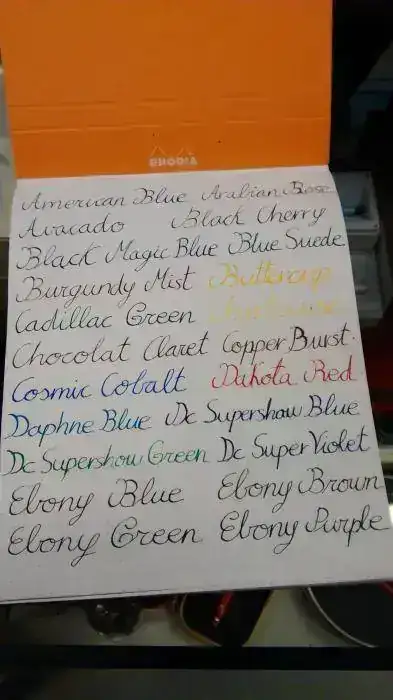 RHODIA
American Blue Arabian Rose
Avacado Black Cherry
Black Magic Blue Blue Suede
Burgundy Mist Buttercup
Cadillac Green
Chocolat Claret Copper Burst.
Cosmic Cobalt Dakota Red
Daphne Blue Dc Supershow Blue
Dc Supershow Green Dc Super Violet
Ebony Blue Ebony Brown
Ebony Green Ebony Purple